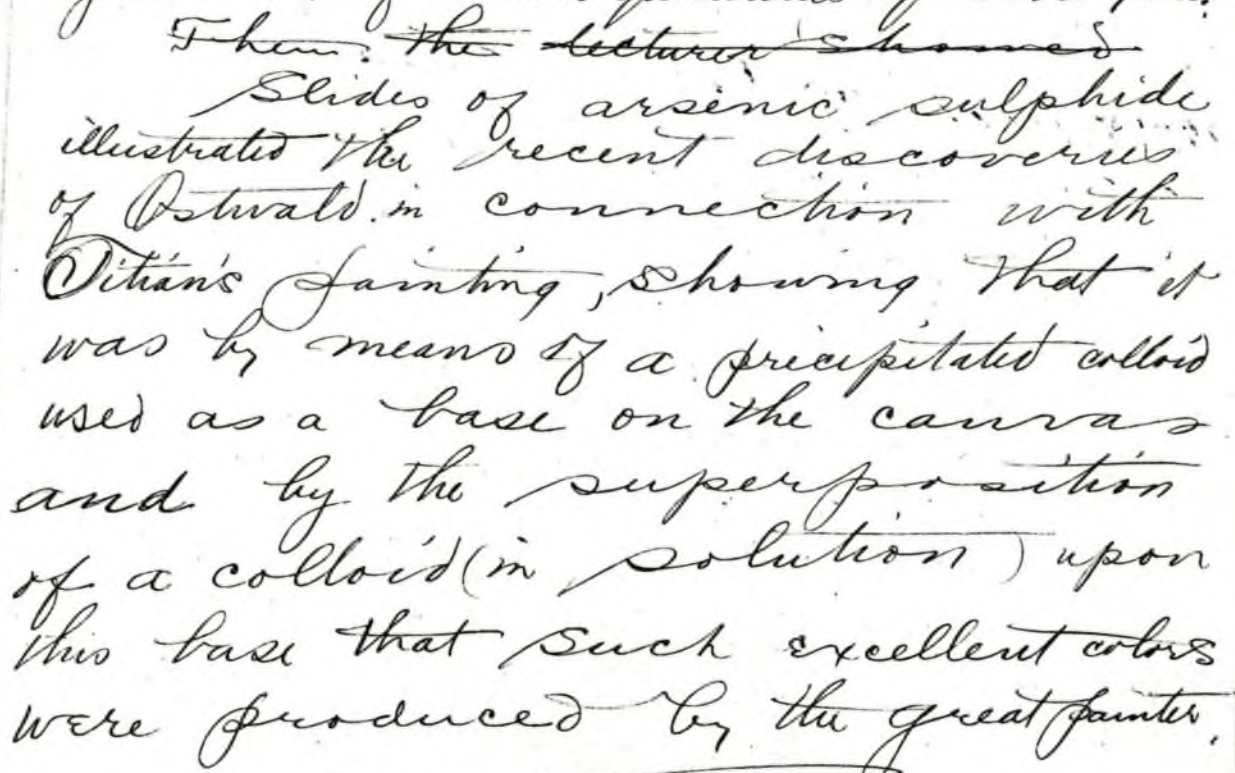 Then the lecturer showed
Slides of arsenic sulphide
illustrated the recent discoveries
of Ostwald in connection with
Titian's painting, showing that it
was by means of a precipitated colloid
used as a base on the canvas
and by the superposition
of a colloid (in solution) upon
this base that such excellent colors
were produced by the great painter.